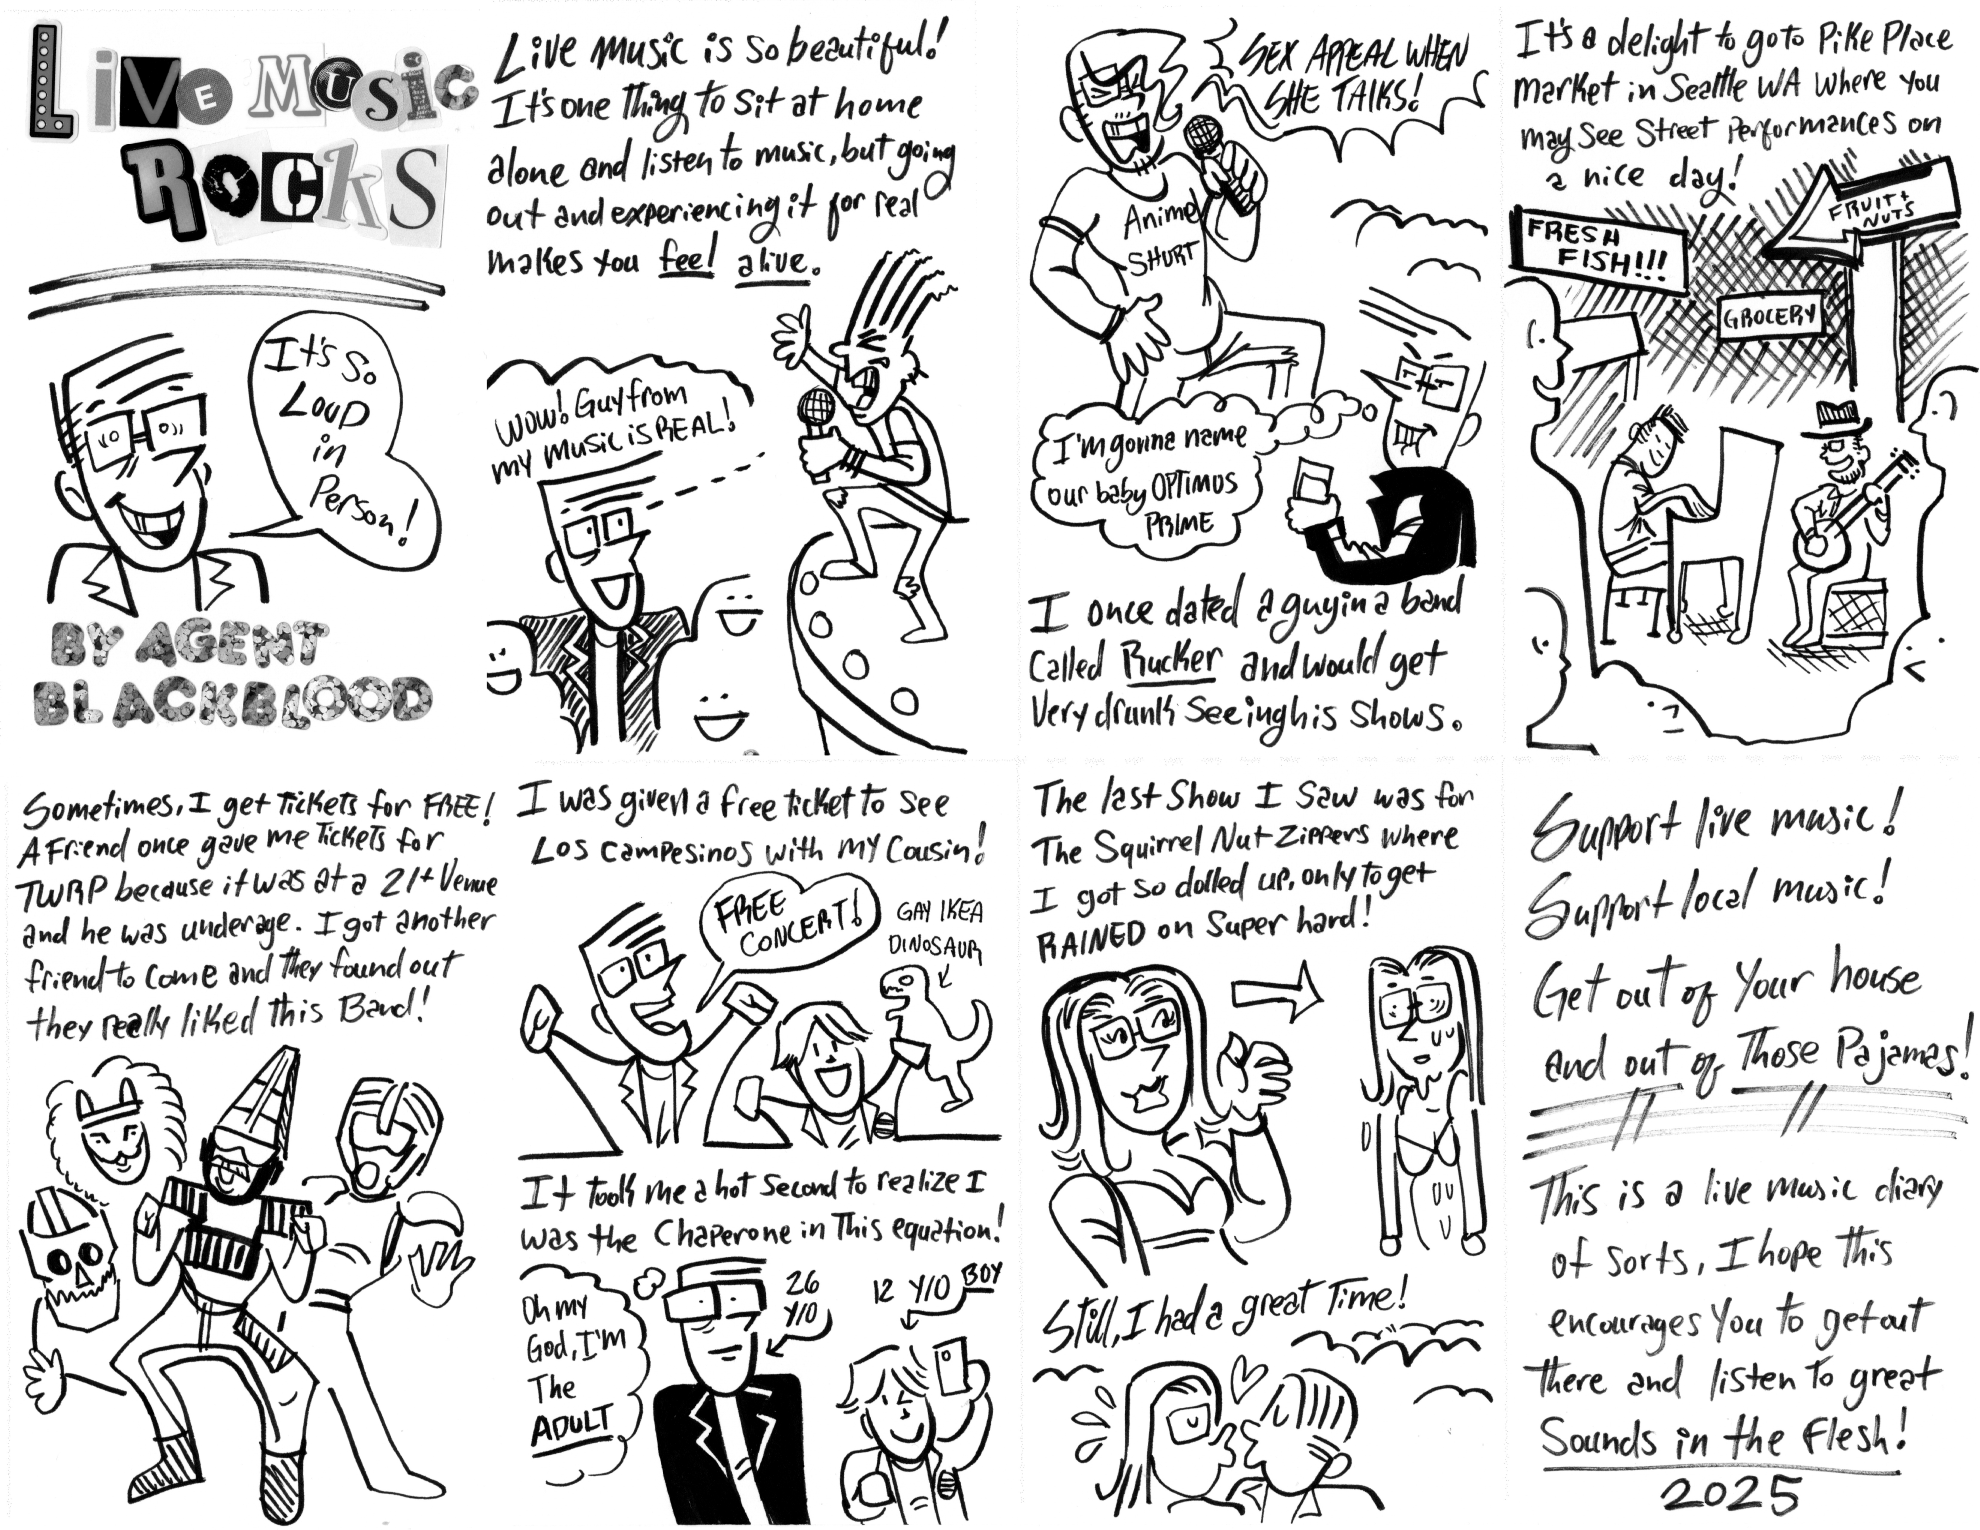 Live Music
Rocks
It's so
Loud
in
Person!
BY AGENT
BLACKBLOOD
Live music is so beautiful!
It's one thing to sit at home
alone and listen to music, but going
out and experiencing it for real
makes you feel alive.
Wow! Guy from
my music is REAL!
SEX APPEAL WHEN
SHE TALKS!
Anime
SHURT
I'm gonna name
our baby OPTIMUS
PRIME
I once dated a guy in a band
Called Rucker and would get
Very drunk seeing his shows.
It's a delight to go to Pike Place
market in Seattle WA where you
may see street performances on
a nice day!
FRUIT +
NUTS
FRESH
FISH!!!
GROCERY
Sometimes, I get tickets for FREE!
A friend once gave me tickets for
TWRP because it was at a 21+ Venue
and he was underage. I got another
friend to come and they found out
they really liked this Band!
I was given a free ticket to see
Los campesinos with my cousin!
FREE
CONCERT!
GAY IKEA
DINOSAUR
It took me a hot second to realize I
was the chaperone in this equation!
Oh my
God, I'm
The
ADULT
26
Y/O
12 Y/O BOY
The last show I saw was for
The Squirrel Nut Zippers where
I got so dolled up, only to get
RAINED on super hard!
Still, I had a great time!
Support live music!
Support local music!
Get out of your house
and out of Those Pajamas!
This is a live music diary
of sorts, I hope this
encourages you to get out
there and listen to great
Sounds in the flesh!
2025